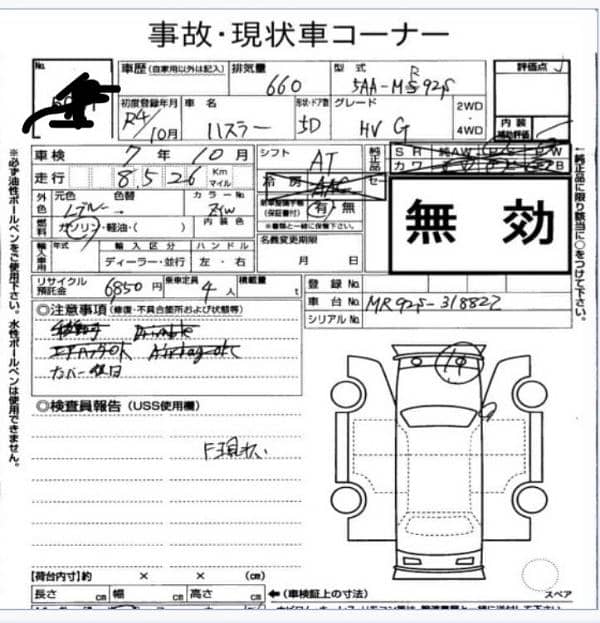 事故・現状車コーナー
No.
車歴 (自家用以外は記入) 排気量 660 型式 5AA-MR92S 評価点
初度登録年月 R4/10月 車名 ハスラー 形状・ドア数 5D グレード HV G 2WD・4WD
内装
補助評価
車検 7年10月 シフト AT 純正品 SR 純AW
走行 8.526 Km マイル 冷房 AAC カワ
外色 元色 色替 カラーNo. ZYW
ブルー
(保証書付) 有・無
※書類と一緒に保管下さい。
無効
燃料 ガソリン・軽油・( ) 内装色
輸入車用 年式 輸入区分 ハンドル 名義変更期限
ディーラー・並行 左・右 月 日
リサイクル預託金 6850円 乗車定員 4人 積載量 t 登録No.
車台No. MR92S-318822
シリアルNo.
◎注意事項 (修復・不具合箇所および状態等)
Drivable
エアバックOK Airbag ok
カバー
◎検査員報告 (USS使用欄)
F現状
【荷台内寸】約 × × (cm)
長さ cm 幅 cm 高さ cm ←(車検証上の寸法) スペア
※必ず油性ボールペンをご使用下さい。水性ボールペンは使用できません。
純正品に限り該当に○をつけて下さい。